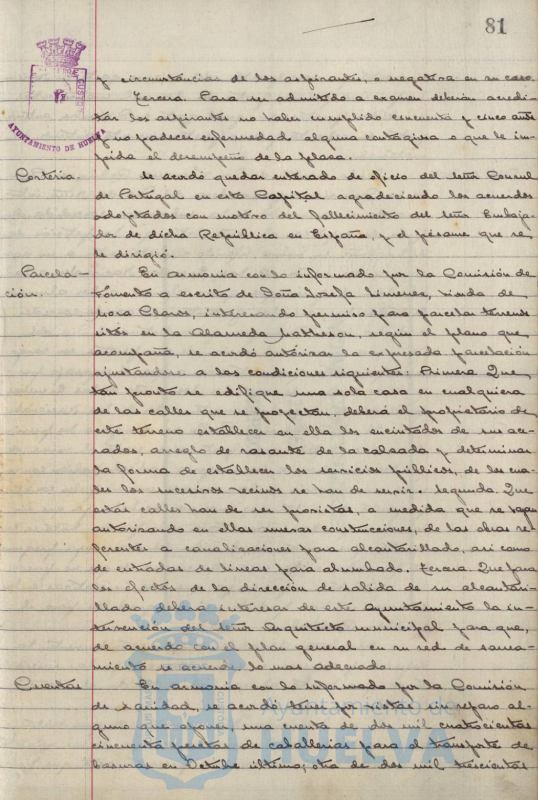 81
AYUNTAMIENTO DE HUELVA
y circunstancias de los aspirantes, o negativa en su caso.
Tercera. Para ser admitido a examen deberán acredi-
tar los aspirantes no haber cumplido cincuenta y cinco años
y no padecer enfermedad alguna contagiosa o que le im-
pida el desempeño de la plaza.
Cortesia. Se acordó quedar enterado de oficio del señor Consul
de Portugal en esta Capital agradeciendo los acuerdos
adoptados con motivo del fallecimiento del señor Embaja-
dor de dicha República en España, y el pésame que se
le dirigió.
Parcela- En armonia con lo informado por la Comisión de
ción. Fomento a escrito de Doña Josefa Jimenez, viuda de
Mora Claros, interesando permiso para parcelar terrenos
sitos en la Alameda Matheson, según el plano que
acompaña, se acordó autorizar la expresada parcelación
ajustandose a las condiciones siguientes: Primera Que
tan pronto se edifique una sola casa en cualquiera
de las calles que se proyectan, deberá el propietario de
este terreno establecer en ella los encintados de sus ace-
rados, arreglo de rasante de la calzada y determinar
la forma de establecer los servicios públicos, de los cua-
les los sucesivos vecinos se han de servir. Segunda. Que
estas calles han de ser provistas, a medida que se vayan
autorizando en ellas nuevas construcciones, de las obras re-
ferentes a canalizaciones para alcantarillado, asi como
de entradas de lineas para alumbrado. Tercera. Que para
los efectos de la dirección de salida de su alcanta-
rillado deberá interesar de este Ayuntamiento la in-
tervención del señor Arquitecto municipal para que,
de acuerdo con el plan general en su red de sanea-
miento se acuerde lo mas adecuado.
Cuentas En armonia con lo informado por la Comisión
de Sanidad, se acordó tener por vistas sin reparo al-
guno que oponer, una cuenta de dos mil cuatrocientas
cincuenta pesetas de caballerias para el transporte de
basuras en Octubre último; otra de dos mil trescientas
Ayuntamiento de
HUELVA